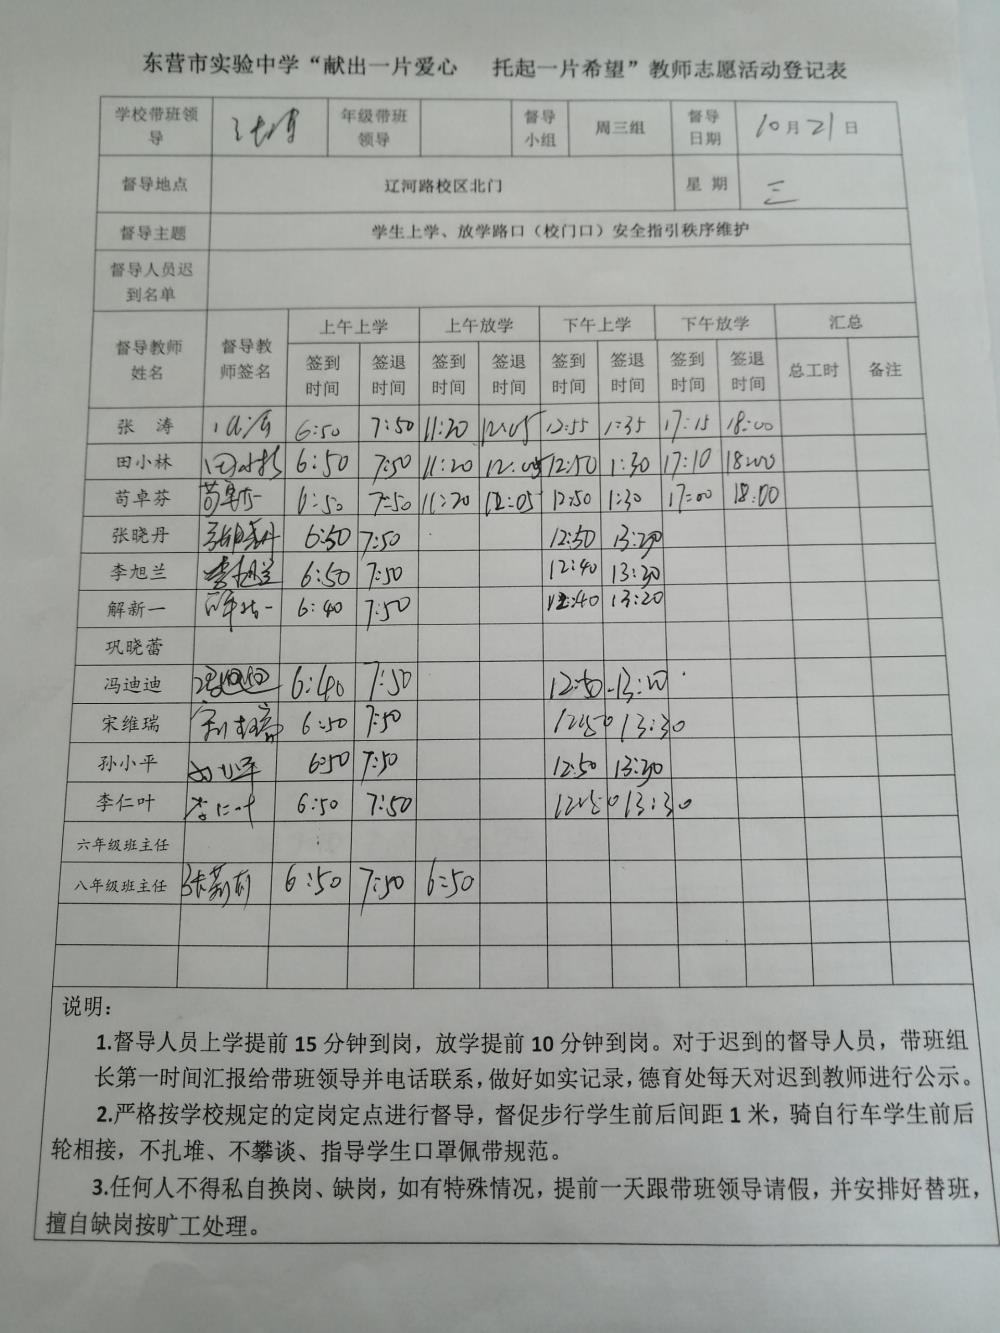 东营市实验中学“献出一片爱心 托起一片希望”教师志愿活动登记表
学校带班领导 年级带班领导 督导小组 周三组 督导日期 10月21日
督导地点 辽河路校区北门 星期 三
督导主题 学生上学、放学路口（校门口）安全指引秩序维护
督导人员迟到名单
督导教师姓名 督导教师签名 上午上学 上午放学 下午上学 下午放学 汇总
签到时间 签退时间 签到时间 签退时间 签到时间 签退时间 签到时间 签退时间 总工时 备注
张 涛 6:50 7:50 11:20 12:05 12:55 1:35 17:15 18:00
田小林 田小林 6:50 7:50 11:20 12:05 12:50 1:30 17:10 18:00
苟卓芬 6:50 7:50 11:20 12:05 12:50 1:30 17:00 18:00
张晓丹 张晓丹 6:50 7:50 12:50 13:30
李旭兰 李旭兰 6:50 7:50 12:40 13:30
解新一 解新一 6:40 7:50 12:40 13:20
巩晓蕾
冯迪迪 冯迪迪 6:40 7:50 12:50 13:20
宋维瑞 宋维瑞 6:50 7:50 12:50 13:30
孙小平 孙小平 6:50 7:50 12:50 13:30
李仁叶 李仁叶 6:50 7:50 12:50 13:30
六年级班主任
八年级班主任 6:50 7:50 6:50
说明：
1.督导人员上学提前 15 分钟到岗，放学提前 10 分钟到岗。对于迟到的督导人员，带班组
长第一时间汇报给带班领导并电话联系，做好如实记录，德育处每天对迟到教师进行公示。
2.严格按学校规定的定岗定点进行督导，督促步行学生前后间距 1 米，骑自行车学生前后
轮相接，不扎堆、不攀谈、指导学生口罩佩带规范。
3.任何人不得私自换岗、缺岗，如有特殊情况，提前一天跟带班领导请假，并安排好替班，
擅自缺岗按旷工处理。